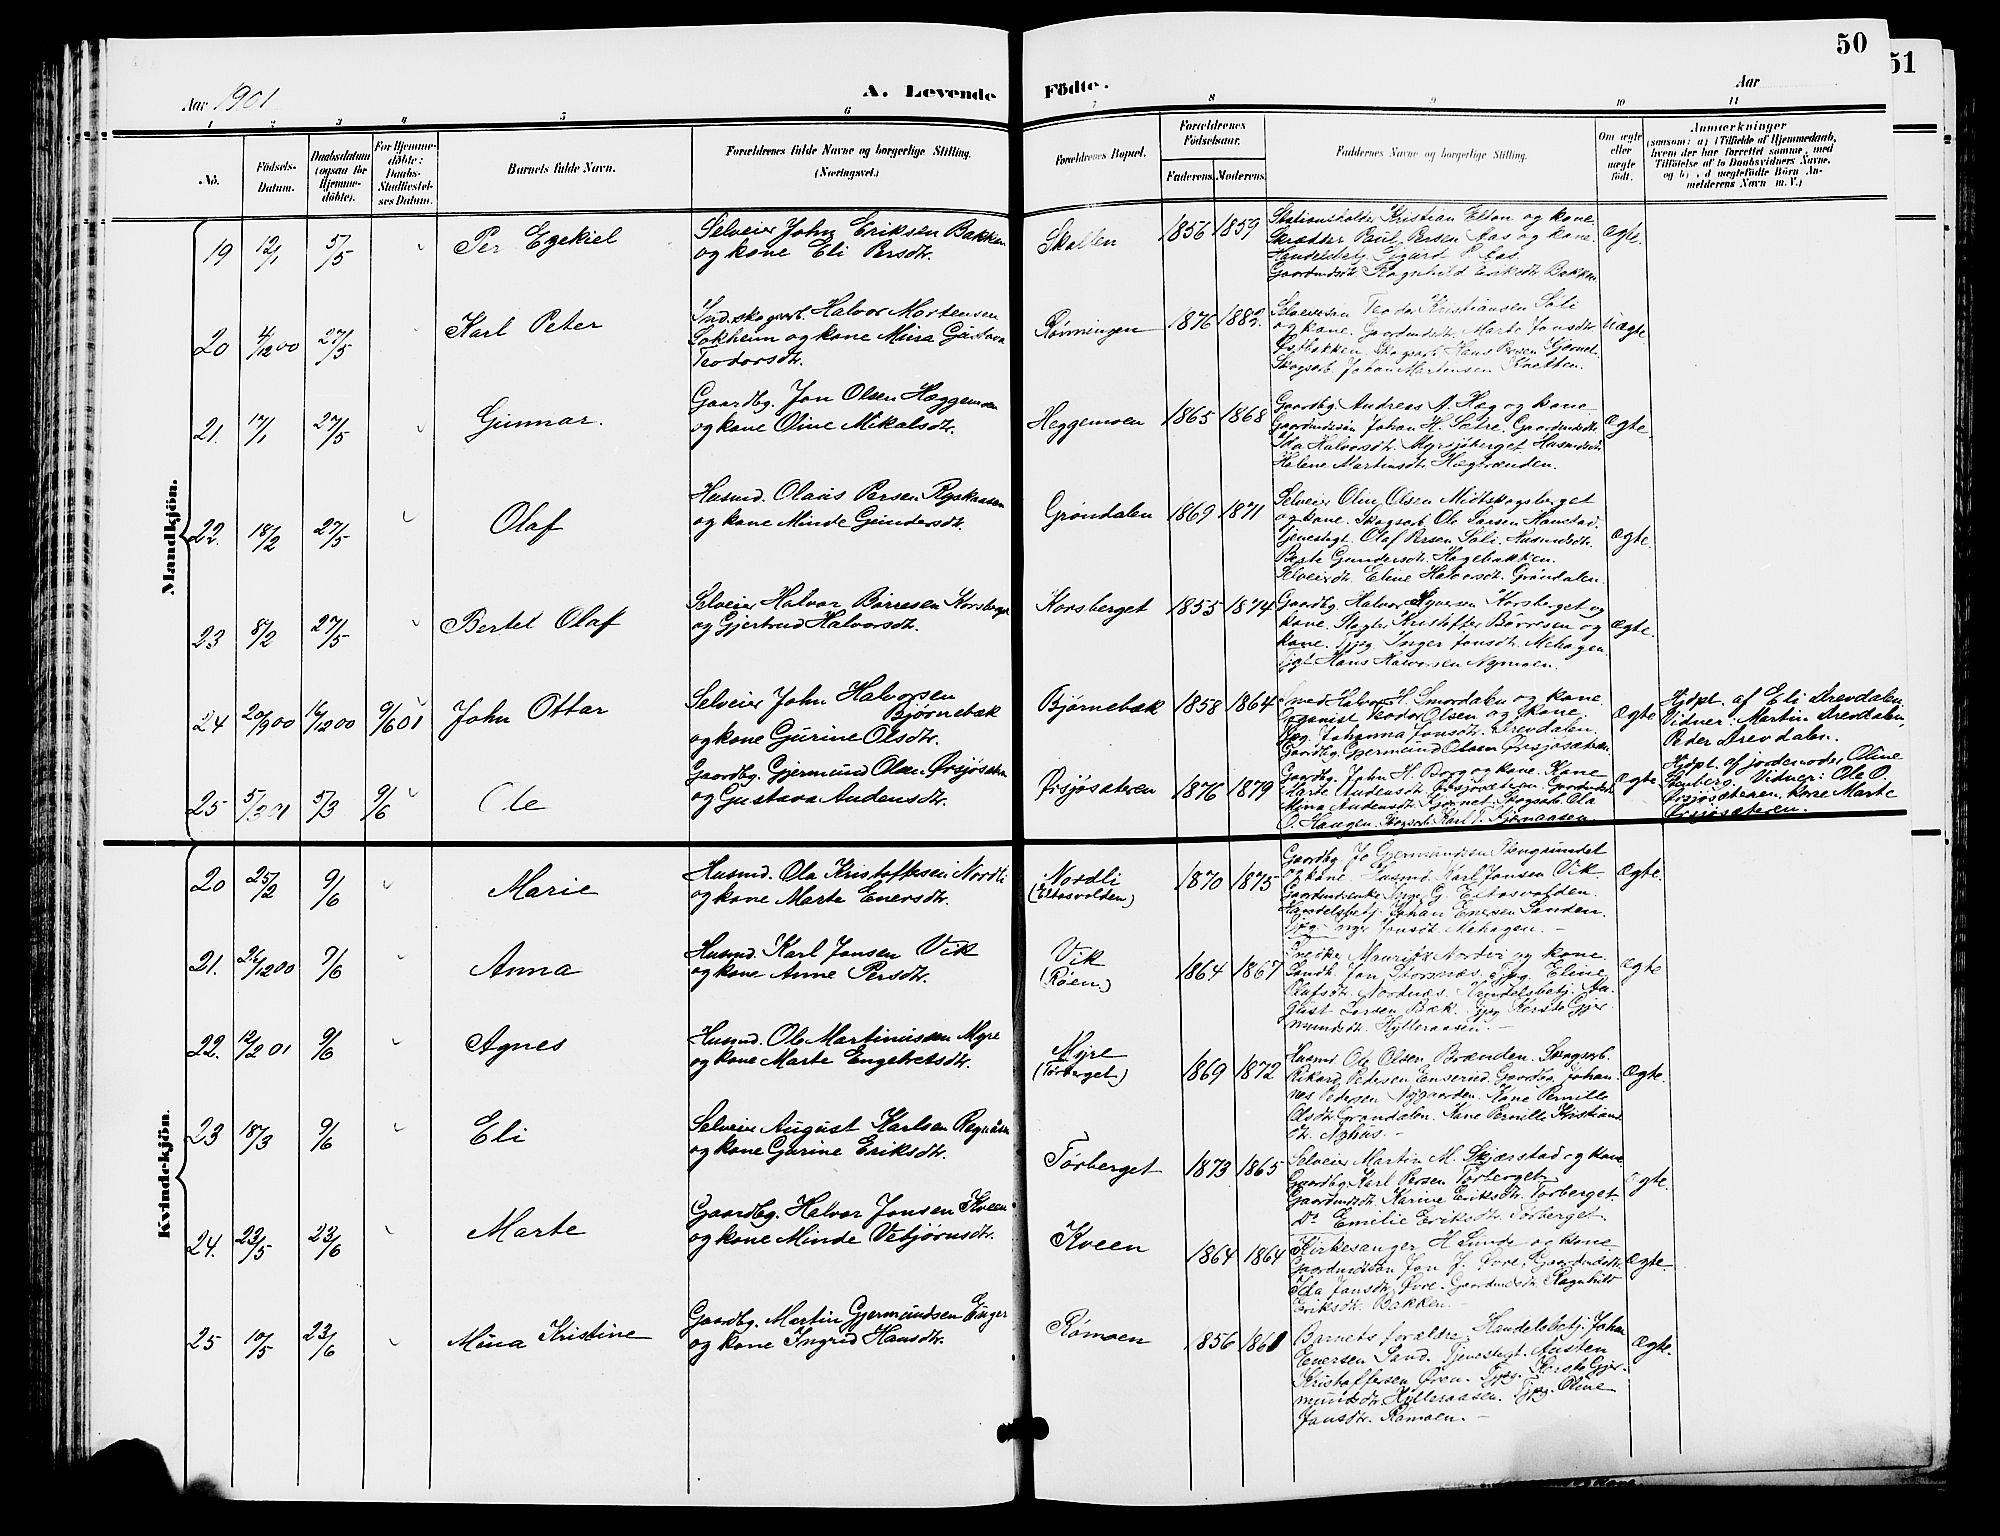 50
51
Aar 1901
A. Levende Födte.
Aar
1 2 3 4 5 6 7 8 9 10 11
No.
Födsels-Datum.
Daabsdatum (ogsaa for Hjemme-döbte).
For Hjemme-döbte: Daabs-Stadfæstel-ses Datum.
Barnets fulde Navn.
Forældrenes fulde Navne og borgerlige Stilling. (Næringsvei.)
Forældrenes Bopæl.
Forældrenes Födselsaar.
Faderens. Moderens.
Faddernes Navne og borgerlige Stilling.
Om ægte eller uægte födt.
Anmærkninger
(saasom: a) i Tilfælde af Hjemmedaab,
hvem der har forrettet samme, med
Tilföielse af to Daabsvidners Navne,
og b) d uægtefödte Börn An-
melderens Navn m. V.)
Mandkjön.
19 12/1 5/5 Per Ezekiel
Selveier John Eriksen Bakken
og kone Eli Persdtr.
Skalten 1856 1859
Stationsholder Kristian Elton og kone
Skrædder Paul Persen Aas og kone
Handelsbetj. Sigurd P. Aas
Gaardmdsdtr. Ragnhild Eriksdtr. Bakken
Ægte.
20 4/12 00 27/5 Karl Peter
Ind. skogarb. Halvor Mortensen
og kone Mina Gustava
Teodorsdtr.
Rømningen 1876
Selveiersøn Teodor Kristiansen Sæli
og kone. Gaardmdsdtr. Marte Jonsdtr.
Østbakken. Skogsarb. Hans Persen
Skogsarb. Johan Martensen
Uægte
21. 17/1 27/5 Gunnar.
Gaardbg. Jon Olsen Hæggemoen
og kone Oline Mikalsdtr.
Heggemoen 1865 1868
Gaardbg. Andreas A. Hæg og kone
Gaardmdssøn Johan H. Sætre. Gaardmdsdtr.
Halvorsdtr. Myrsjøberget
Helene Martinsdtr. Hægbrænden.
Ægte.
22. 18/2 27/5 Olaf
Husmd. Olaus Persen
og kone Minde Gundersdtr.
Grøndalen 1869 1871
Selveier Olin Olsen Midtskogsberget
og kone. Skogsarb. Ole Larsen
Tjenestegt. Olaf Persen Sæli. Husmdsdtr.
Berte Gundersdtr. Hagebakken.
Selveierdtr. Eline Halvorsdtr. Grøndalen.
Ægte.
23 8/2 27/5 Bertel Olaf
Selveier Halvor Børresen Korsberget
og Gjertrud Halvorsdtr.
Korsberget 1855 1874
Gaardbg. Halvor Korsberget og
kone. Kristoffer Børresen og
kone. Tjpg. Inger Jonsdtr. Mehagen
Hans Halvorsen Nymoen.
Ægte.
24 20/9 00 16/12 00 9/6 01 John Ottar
Selveier John Halvorsen
Bjørnebæk
og kone Gurine Olsdtr.
Bjørnebæk 1858 1864
Smed Halvor H. Smordalen og kone.
Organist Teodor Olsen og kone.
Johanna Jonsdtr. Drevdalen,
Gaardbg. Gjermund Olsen Ørsjøsæteren
Ægte
Hjdpt. af Eli Drevdalen,
Vidner: Martin Drevdalen,
Peder Drevdalen.
25 5/3 01 5/3 9/6 Ole
Gaardbg. Gjermund Olsen Ørsjøsæteren
og Gustava Andersdtr.
Ørsjøsæteren 1876 1879
Gaardbg. John H. Borg og kone. Kone
Marte Andersdtr. Ørsjøsæteren. Gaardmdsdtr.
Mina Andersdtr. Skogsarb. Ola
O. Haugen. Skogsarb. Karl
Ægte
Hjdpt. af jordemoder Oline
Stenberg. Vidner: Ole O.
Ørsjøsæteren, kone Marte
Ørsjøsæteren.
Kvindekjön.
20 25/2 9/6 Marie
Husmd. Ola Kristoffersen Nordli
og kone Marte Enersdtr.
Nordli
(Eltosvolden)
1870 1875
Gaardbg. Jo Gjermundsen
og kone. Husmd. Karl Jonsen Vik
Gaardmdsenke Inger G. Eltosvolden.
Handelsbetj. Johan Enersen Sanden.
Tjpg. Inger Jonsdt. Mehagen. —
Ægte.
21. 24/12 00 9/6 Anna
Husmd. Karl Jonsen Vik
og kone Anne Persdtr.
Vik
(Røen.)
1864 1867
Snedker Mauritz Nordvi og kone.
Landh. Jon Storsnæs. Tjpg. Eline
Olafsdtr. Nordnæs. Handelsbetj. Au-
gust Larsen Bæk. Tjpg. Kersti Gjer-
mundsdtr. Hylleraasen. —
Ægte
22. 12/2 01 9/6 Agnes
Husmd. Ole Martinussen Myre
og kone Marte Engebretsdtr.
Myre
(Tørberget)
1869 1872
Husmd Ole Olsen Brænden. Skogsarb.
Rikard Pedersen Enserud. Gaardbg. Johan-
nes Pedersen Nygaarden. Kone Pernille
Olsdtr. Grøndalen. Kone Pernille Kristians-
dtr. Nyhus. —
Ægte.
23 18/3 9/6 Eli
Selveier August Karlsen
og kone Gurine Eriksdtr.
Tørberget 1873 1865
Selveier Martin M. Skjærstad og kone
Gaardbg. Karl Persen Tørberget
Gaardmdsdtr. Karine Eriksdtr. Tørberget.
Do Emilie Eriksdtr. Tørberget.
Ægte.
24. 23/5 23/6 Marte
Gaardbg. Halvor Jonsen Kveen
og kone Minde Vebjørnsdtr.
Kveen 1864 1864
Kirkesanger H. Sunde og kone
Gaardmdssøn Jon J. Øvre, Gaardmdsdtr.
Ida Jonsdtr. Øvre. Gaardmdsdtr. Ragnhild
Eriksdtr. Bakken. —
Ægte.
25 10/5 23/6 Mina Kristine
Gaardbg. Martin Gjermundsen Enger
og kone Ingrid Hansdtr.
Rømoen 1856 1861
Barnets forældre. Handelsbetj. Johan
Enersen Sand. Tjenestegt. Austen
Kristoffersen Øren. Tjpg. Kersti Gjer-
mundsdtr. Hylleraasen. Tjpg. Oline
Jonsdtr. Rømoen. —
Ægte.